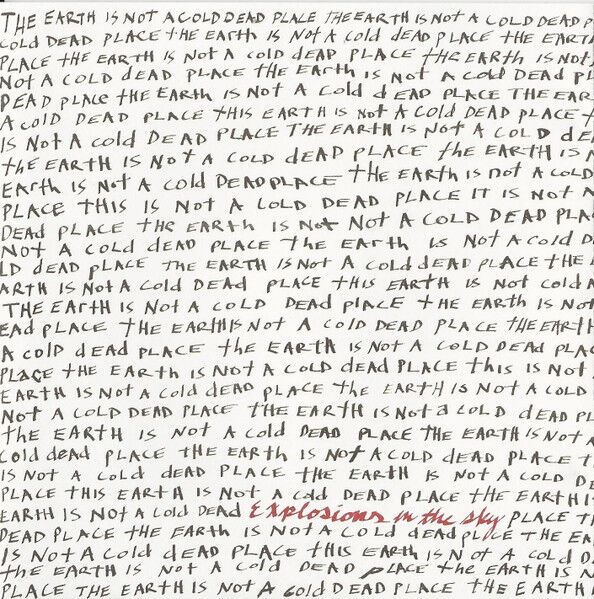 THE EARTH IS NOT A COLD DEAD PLACE THE EARTH IS NOT A COLD DEAD P
COLD DEAD PLACE THE EARTH IS NOT A COLD DEAD PLACE THE EARTH
PLACE THE EARTH IS NOT A COLD DEAD PLACE THE EARTH IS NOT
NOT A COLD DEAD PLACE THE EARTH IS NOT A COLD DEAD PL
DEAD PLACE THE EARTH IS NOT A COLD DEAD PLACE THE EAR
A COLD DEAD PLACE THIS EARTH IS NOT A COLD DEAD PLACE T
IS NOT A COLD DEAD PLACE THE EARTH IS NOT A COLD DE
THE EARTH IS NOT A COLD DEAD PLACE THE EARTH IS N
EARTH IS NOT A COLD DEAD PLACE THE EARTH IS NOT A COLD
PLACE THIS IS NOT A COLD DEAD PLACE IT IS NOT A
DEAD PLACE THE EARTH IS NOT NOT A COLD DEAD PLA
NOT A COLD DEAD PLACE THE EARTH IS NOT A COLD D
LD DEAD PLACE THE EARTH IS NOT A COLD DEAD PLACE THE
ARTH IS NOT A COLD DEAD PLACE THIS EARTH IS NOT COLD A
THE EARTH IS NOT A COLD DEAD PLACE THE EARTH IS NOT
EAD PLACE THE EARTH IS NOT A COLD DEAD PLACE THE EARTH
A COLD DEAD PLACE THE EARTH IS NOT A COLD DEAD PLA
PLACE THE EARTH IS NOT A COLD DEAD PLACE THIS IS NOT
EARTH IS NOT A COLD DEAD PLACE THE EARTH IS NOT A COLD
NOT A COLD DEAD PLACE THE EARTH IS NOT A COLD DEAD PL
THE EARTH IS NOT A COLD DEAD PLACE THE EARTH IS NOT A
COLD DEAD PLACE THE EARTH IS NOT A COLD DEAD PLACE T
IS NOT A COLD DEAD PLACE THE EARTH IS NOT A COLD
PLACE THIS EARTH IS NOT A COLD DEAD PLACE THE EARTH I
EARTH IS NOT A COLD DEAD Explosions in the sky PLACE T
DEAD PLACE THE EARTH IS NOT A COLD DEAD PLACE THE EA
IS NOT A COLD DEAD PLACE THIS EARTH IS NOT A COLD D
THE EARTH IS NOT A COLD DEAD PLACE THE EARTH IS N
PLACE THE EARTH IS NOT A COLD DEAD PLACE THE EARTH I